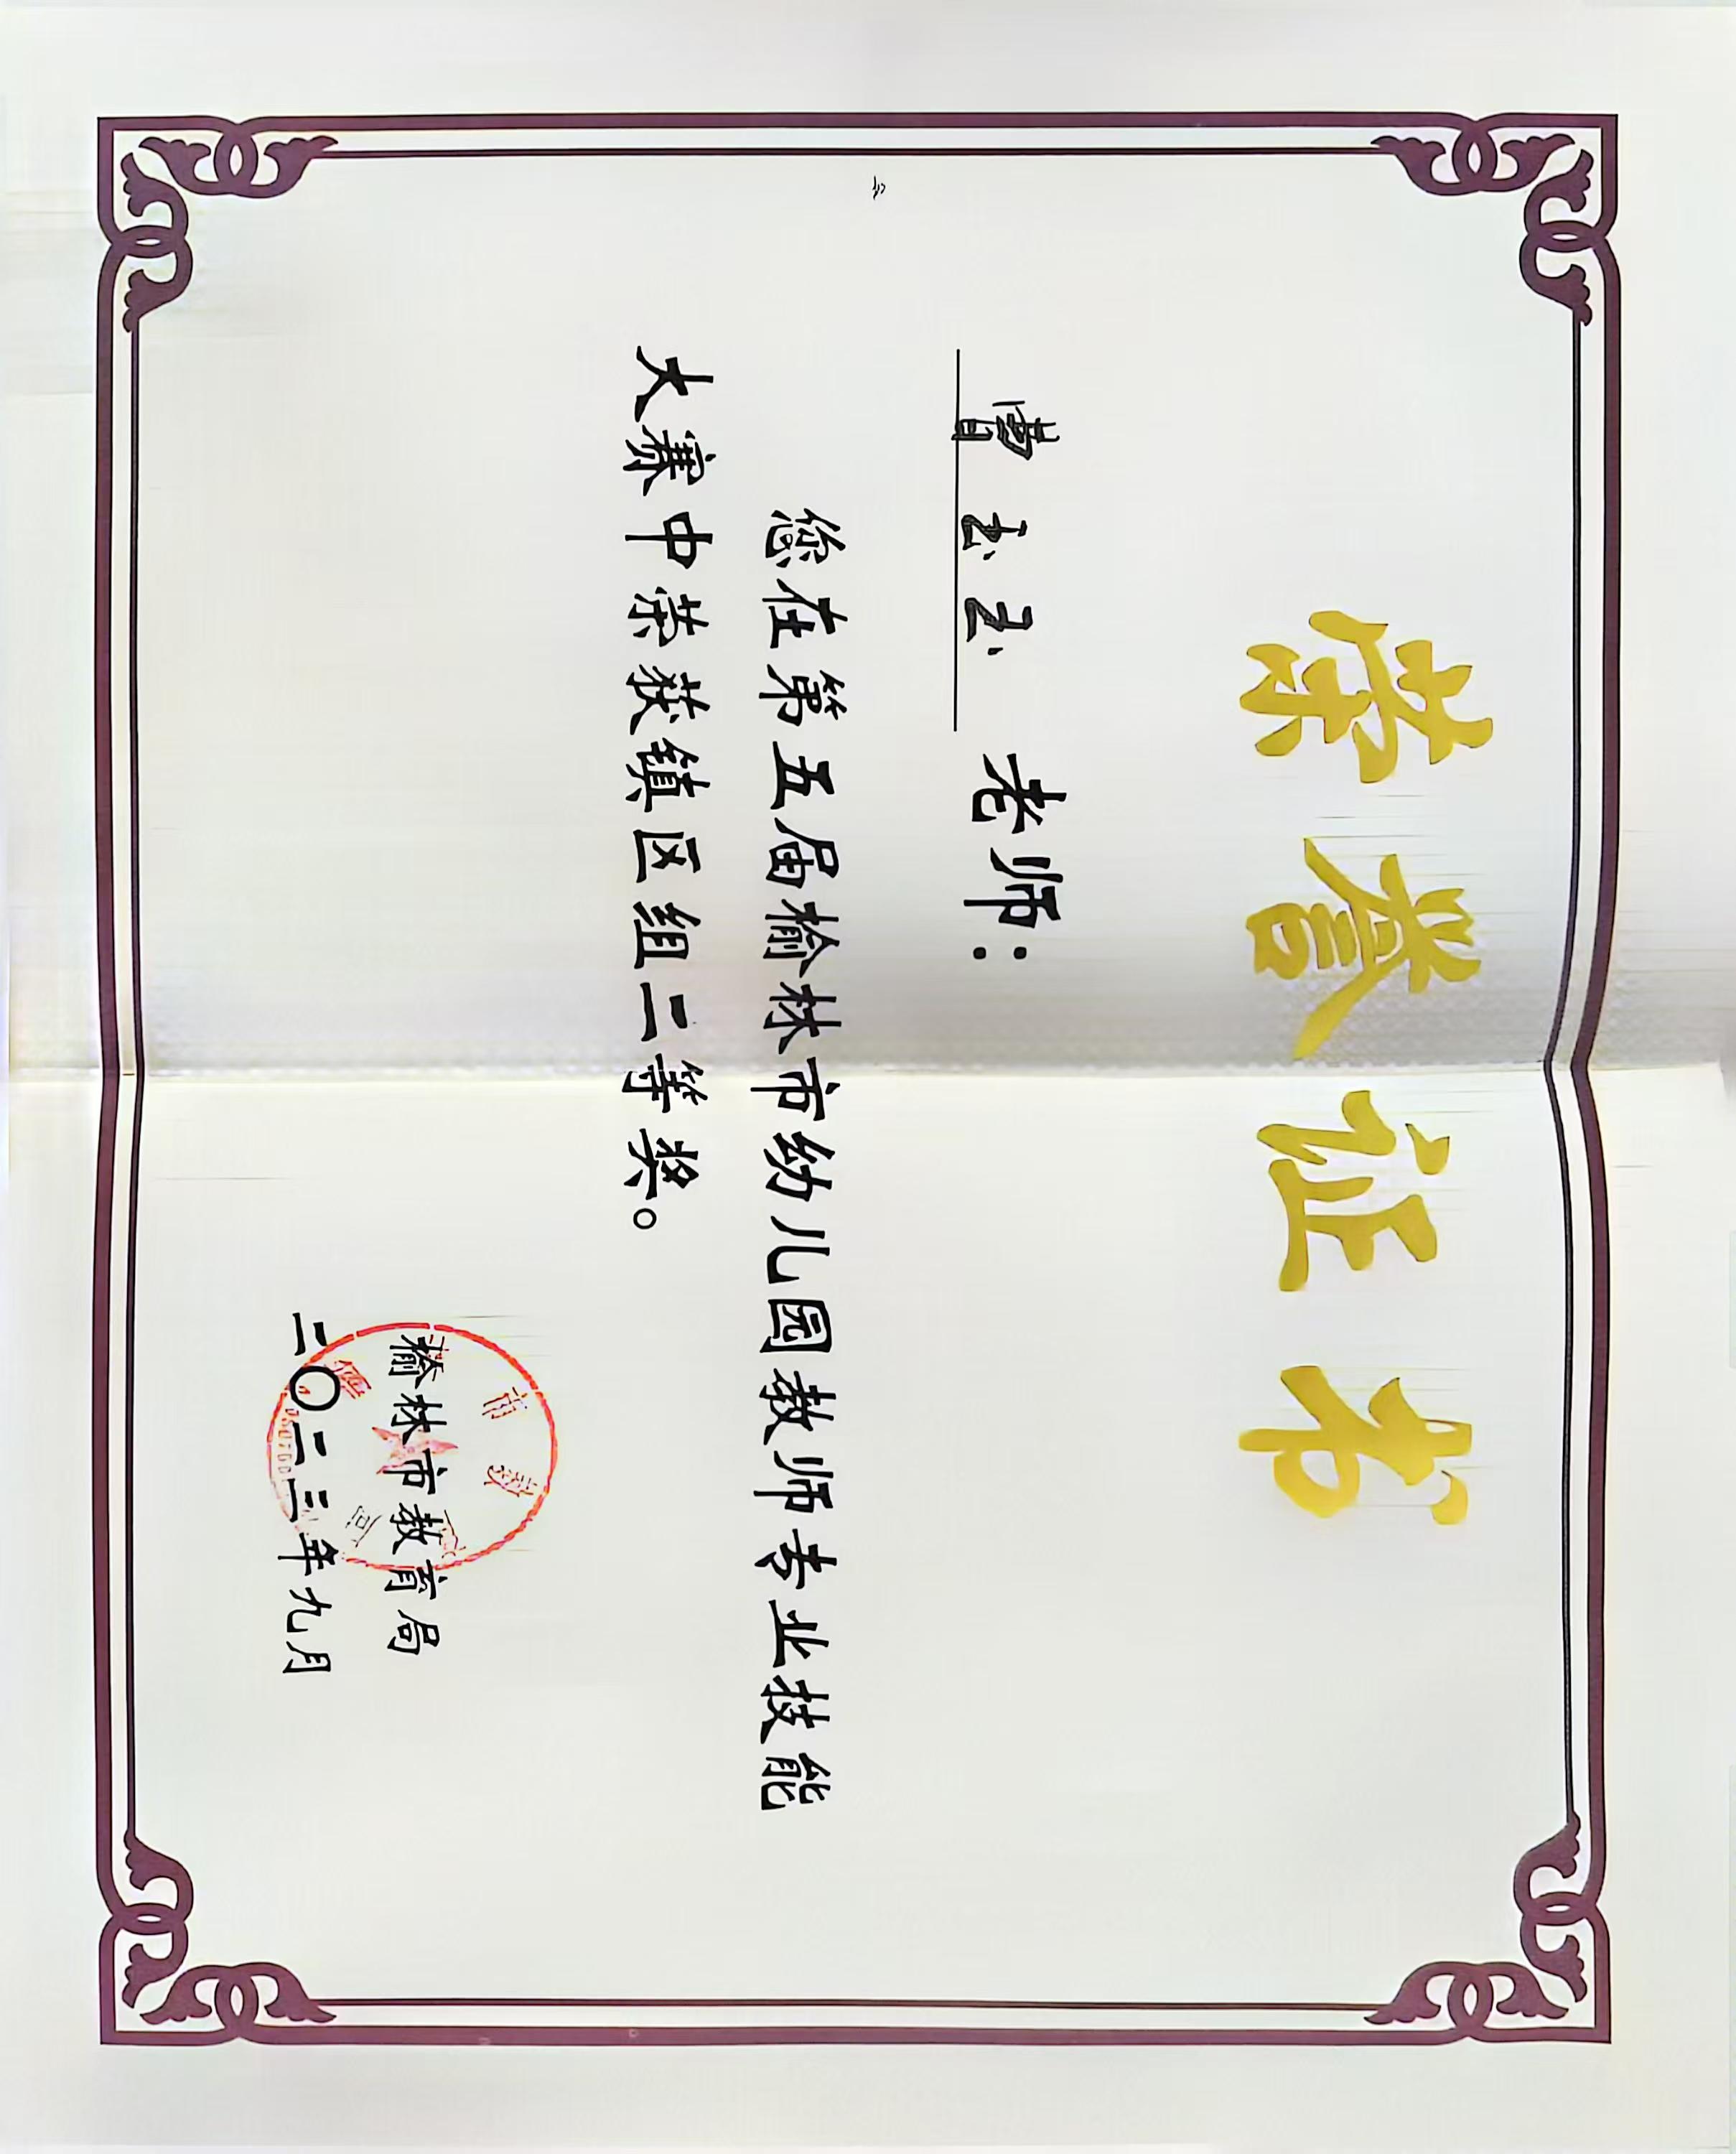 荣誉证书
曹玉玉 老师：
您在第五届榆林市幼儿园教师专业技能
大赛中荣获镇区组二等奖。
榆林市教育局
二〇二三年九月